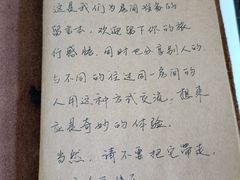 这是我们为房间准备的
留言本，欢迎留下你的旅
行感悟，同时也分享别人的，
与不同的住过同一房间的
人用这种方式交流，想来
应是奇妙的体验。
当然，请不要把它带走，